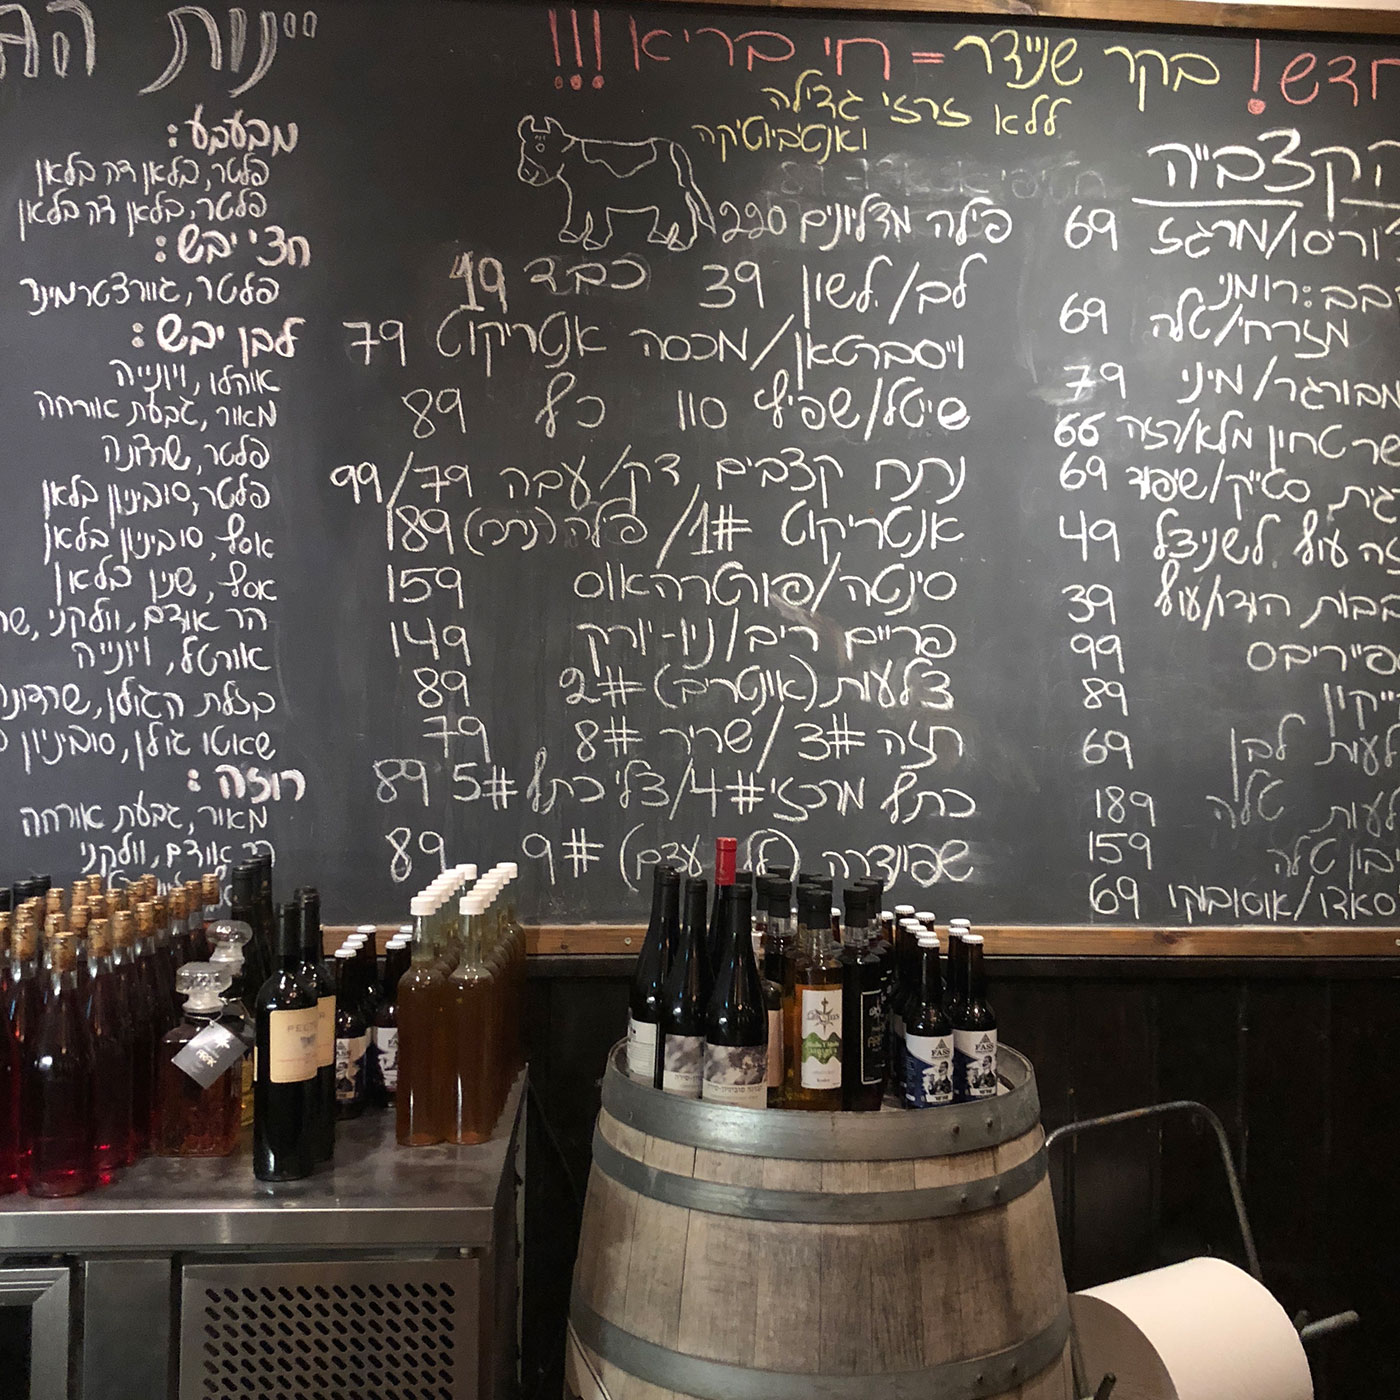 חדש! בקר שניידר = חי בריא!!!
ללא זרזי גדילה
ואנטיביוטיקה
הקצביה
69 צ'וריסו/מרגז
קבב: רומני
69 מזרחי/טלה
79 המבורגר/מיני
66 בשר טחון מלא/רזה
69 פרגית סטייק/שיפוד
49 חזה עוף לשניצל
39 לבבות הודו/עוף
99 ספייריבס
89 בייקון
69 צלעות לבן
189 צלעות טלה
159 טלה
69 אוסאדו/אוסובוקו
פילה מדליונים 220
לב/לשון 39 כבד 49
וייסבראטן/מכסה אנטריקוט 79
שייטל/שפיץ 110 כף 89
נתח קצבים דק/עבה 99/79
אנטריקוט #1/פילה (נתח) 189
סינטה/פורטרהאוס 159
פריים ריב/ניו-יורק 149
צלעות (אונטריב) #2 89
חזה #3/שריר #8 79
כתף מרכזי #4/צלי כתף #5 89
שפונדרה (ללא עצם) #9 89
יינות
מבעבע:
פלטר, בלאן דה בלאן
פלטר, בלאן דה בלאן
חצי יבש:
פלטר, גוורצטרמינר
לבן יבש:
אוהלו, ויונייה
מאור, גבעת אורחה
פלטר, שרדונה
פלטר, סוביניון בלאן
אסף, סוביניון בלאן
אסף, שנין בלאן
הר אודם, וולקני, שר
אורטל, ויונייה
בזלת הגולן, שרדונה
שאטו גולן, סוביניון
רוזה:
מאור, גבעת אורחה
הר אודם, וולקני
FASS
FASS